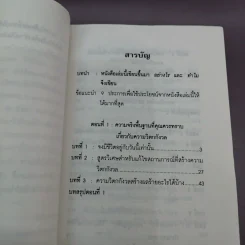 สารบัญ
บทนำ : หนังสือเล่มนี้เขียนขึ้นมา อย่างไร และ ทำไม
จึงเขียน
ข้อแนะนำ 9 ประการเพื่อใช้ประโยชน์จากหนังสือเล่มนี้ให้
ได้มากที่สุด
ตอนที่ 1 : ความจริงพื้นฐานที่คุณควรทราบ
เกี่ยวกับความวิตกกังวล
บทที่ 1 : จงมีชีวิตอยู่กับวันนี้เท่านั้น 3
บทที่ 2 : สูตรวิเศษสำหรับแก้ไขสถานการณ์ที่สร้างความ
วิตกกังวล 21
บทที่ 3 : ความวิตกกังวลสร้างผลร้ายอะไรได้บ้าง 43
บทสรุปตอนที่ 1